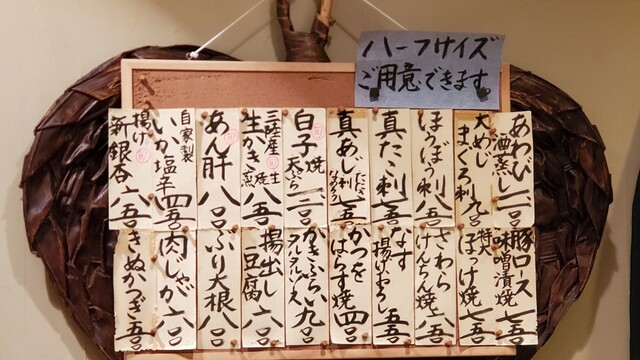 ハーフサイズ
ご用意できます。
あわび酒蒸し 一二〇〇
大めじまぐろ刺 九〇〇
ほうぼう刺 八五〇
真たこ刺 八五〇
真あじ刺 たたき なめろう 七五〇
白子 焼 天ぷら 一二〇〇
三陸産 生かき 生 焼 八五〇
あん肝 八〇〇
自家製 いか塩辛 四五〇
揚げ新銀杏 六五〇
豚ロース味噌漬焼 七五〇
特大ほっけ焼 七五〇
さわらけんちん焼 八五〇
なす揚げおろし 五五〇
かつをはらす焼 四五〇
かきふらい 九〇〇 タルタルソース
揚出し豆腐 六〇〇
ぶり大根 八〇〇
肉じゃが 六〇〇
きぬかつぎ 五五〇